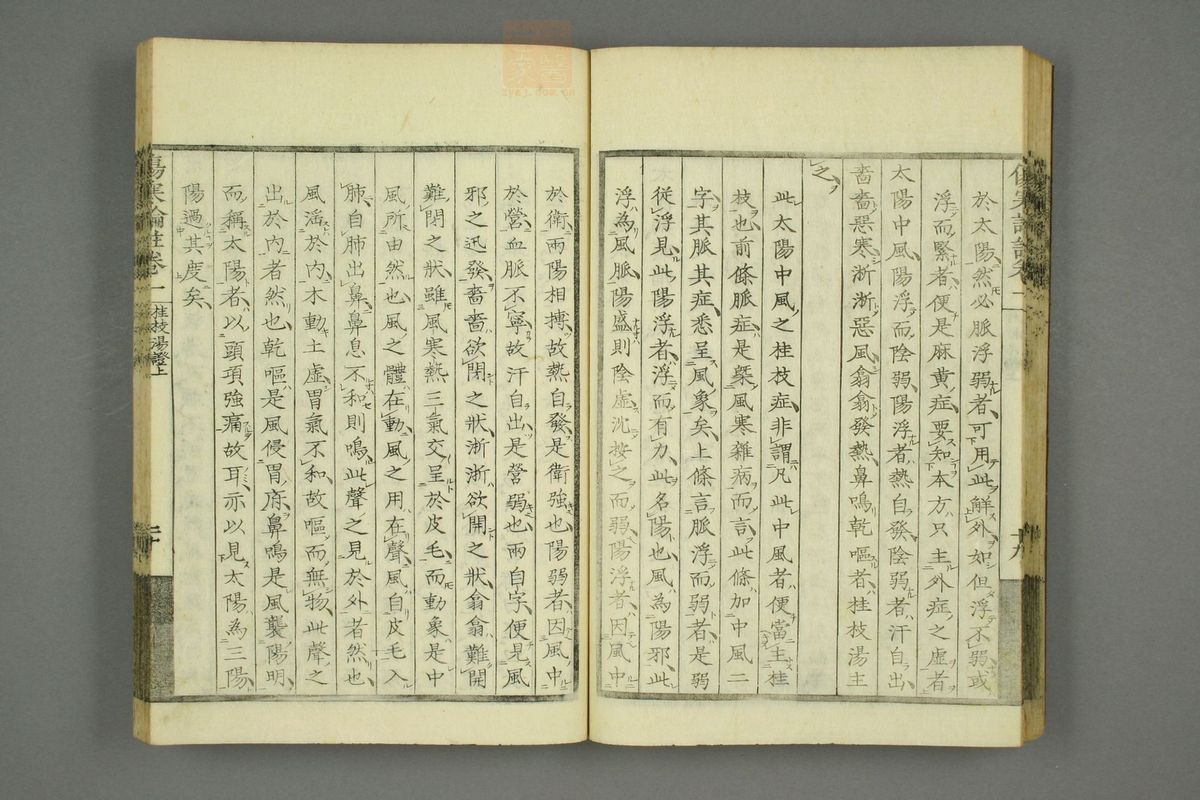 於太陽然必脈浮弱者可用此解外如但浮不弱或
浮而緊者便是麻黄症要知本方只主外症之虛者
太陽中風陽浮而陰弱陽浮者熱自發陰弱者汗自出
嗇嗇惡寒淅淅惡風翕翕發熱鼻鳴乾嘔者桂枝湯主
之
此太陽中風之桂枝症非謂凡此中風者便當主桂
枝也前條脈症是槩風寒雜病而言此條加中風二
字其脈其症悉呈風象矣上條言脈浮而弱者是弱
從浮見此陽浮者浮而有力此名陽也風為陽邪此
浮為風脈陽盛則陰虛沈按之而弱陽浮者因風中
十九
於衛兩陽相搏故熱自發是衛強也陽弱者因風中
於營血脈不寧故汗自出是營弱也兩自字便見風
邪之迅發嗇嗇欲閉之狀淅淅欲開之狀翕翕難開
難閉之狀雖風寒熱三氣交呈於皮毛而動象是中
風所由然也風之體在動風之用在聲風自皮毛入
肺自肺出鼻鼻息不和則鳴此聲之見於外者然也
風淫於内木動土虛胃氣不和故嘔而無物此聲之
出於内者然也乾嘔是風侵胃府鼻鳴是風襲陽明
而稱太陽者以頭項強痛故耳亦以見太陽為三陽
陽過其度矣
傷寒論註卷一
桂枝湯證上
二十